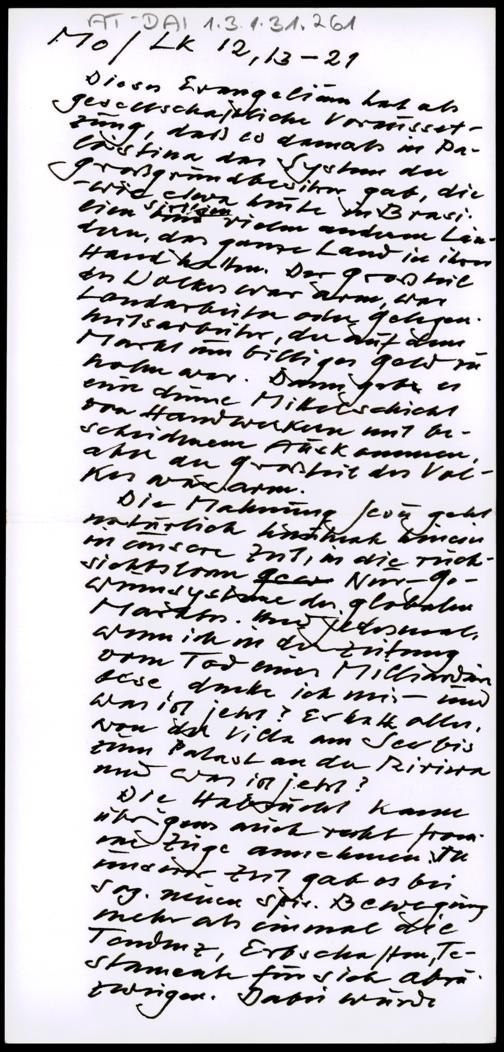 AT-DAI 1.3.1.31.261
Mo / Lk 12,13-21
Dieses Evangelium hat als
gesellschaftliche Vorausset-
zung, daß es damals in Pa-
lästina das System der
Großgrundbesitzer gab, die
- wie etwa heute in Brasi-
lien und vielen anderen Län-
dern, das ganze Land in ihrer
Hand hatten. Der Großteil
des Volkes war arm, war
Landarbeiter oder Gelegen-
heitsarbeiter, der auf dem
Markt um billiges Geld zu
haben war. Dann gab es
eine dünne Mittelschicht
von Handwerkern mit be-
scheidenem Auskommen,
aber der Großteil des Vol-
kes war arm.
Die Mahnung Jesu geht
natürlich hinein
in unsere Zeit, in die rück-
sichtslosen Nur-Ge-
winnsysteme des globalen
Marktes. Und jedesmal,
wenn ich in der Zeitung
vom Tod eines Milliardärs
lese denke ich mir - und
was ist jetzt? Er hatte alles,
von der Villa am See bis
zum Palast an der Riviera
und was ist jetzt?
Die Habsucht kann
übrigens auch recht from-
me Züge annehmen. In
unserer Zeit gab es bei
sog. neuen spir. Bewegung
mehr als einmal die
Tendenz, Erbschaften, Te-
stamente für sich abzu-
zweigen. Dabei wurde